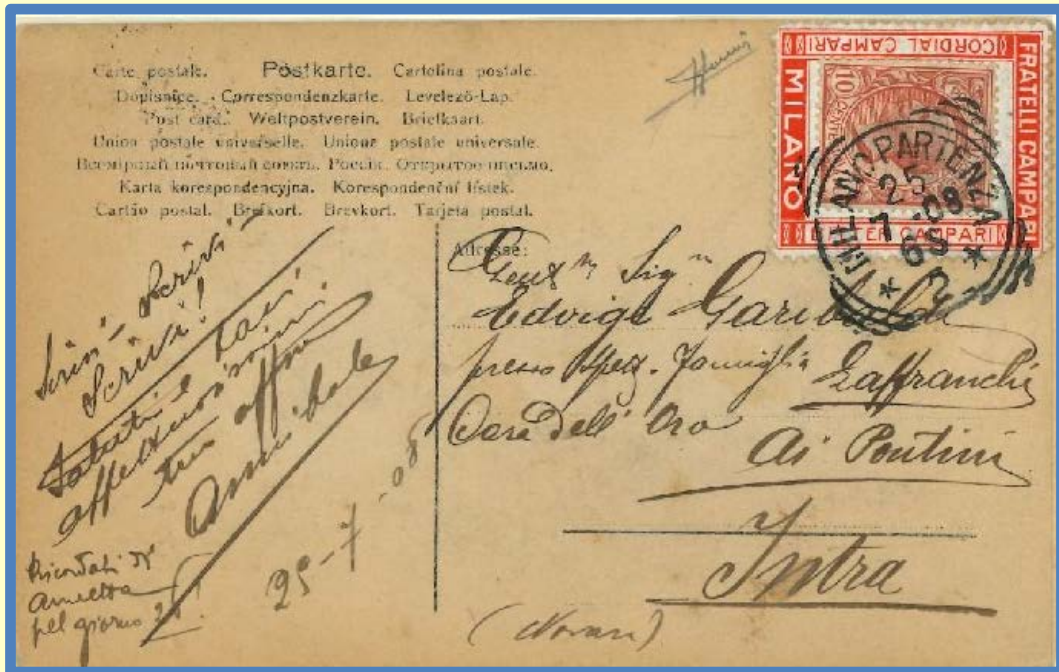 Carte postale. Postkarte. Cartolina postale.
Dopisnice. Correspondenzkarte. Levelező-Lap.
Post card. Weltpostverein. Briefkaart.
Union postale universelle. Unione postale universale.
Всемірный почтовый союзъ. Россія. Открытое письмо.
Karta korespondencyjna. Korespondenční lístek.
Cartão postal. Brefkort. Brevkort. Tarjeta postal.
CORDIAL CAMPARI
FRATELLI CAMPARI
MILANO
BITTER CAMPARI
10
MILANO PARTENZA
25
7-08
6S
Adresse:
Scrivi - Scrivi
Scrivi!
Saluti e baci
affettuosissimi
tuo aff
Annibale
25-7-08
Ricordati di
Annetta
pel giorno
Gent Sig
Edvige Garibaldi
presso Spez. Famiglia Zaffranchi
Casa dell' Oro
Ai Pontini
Intra
(Novara)